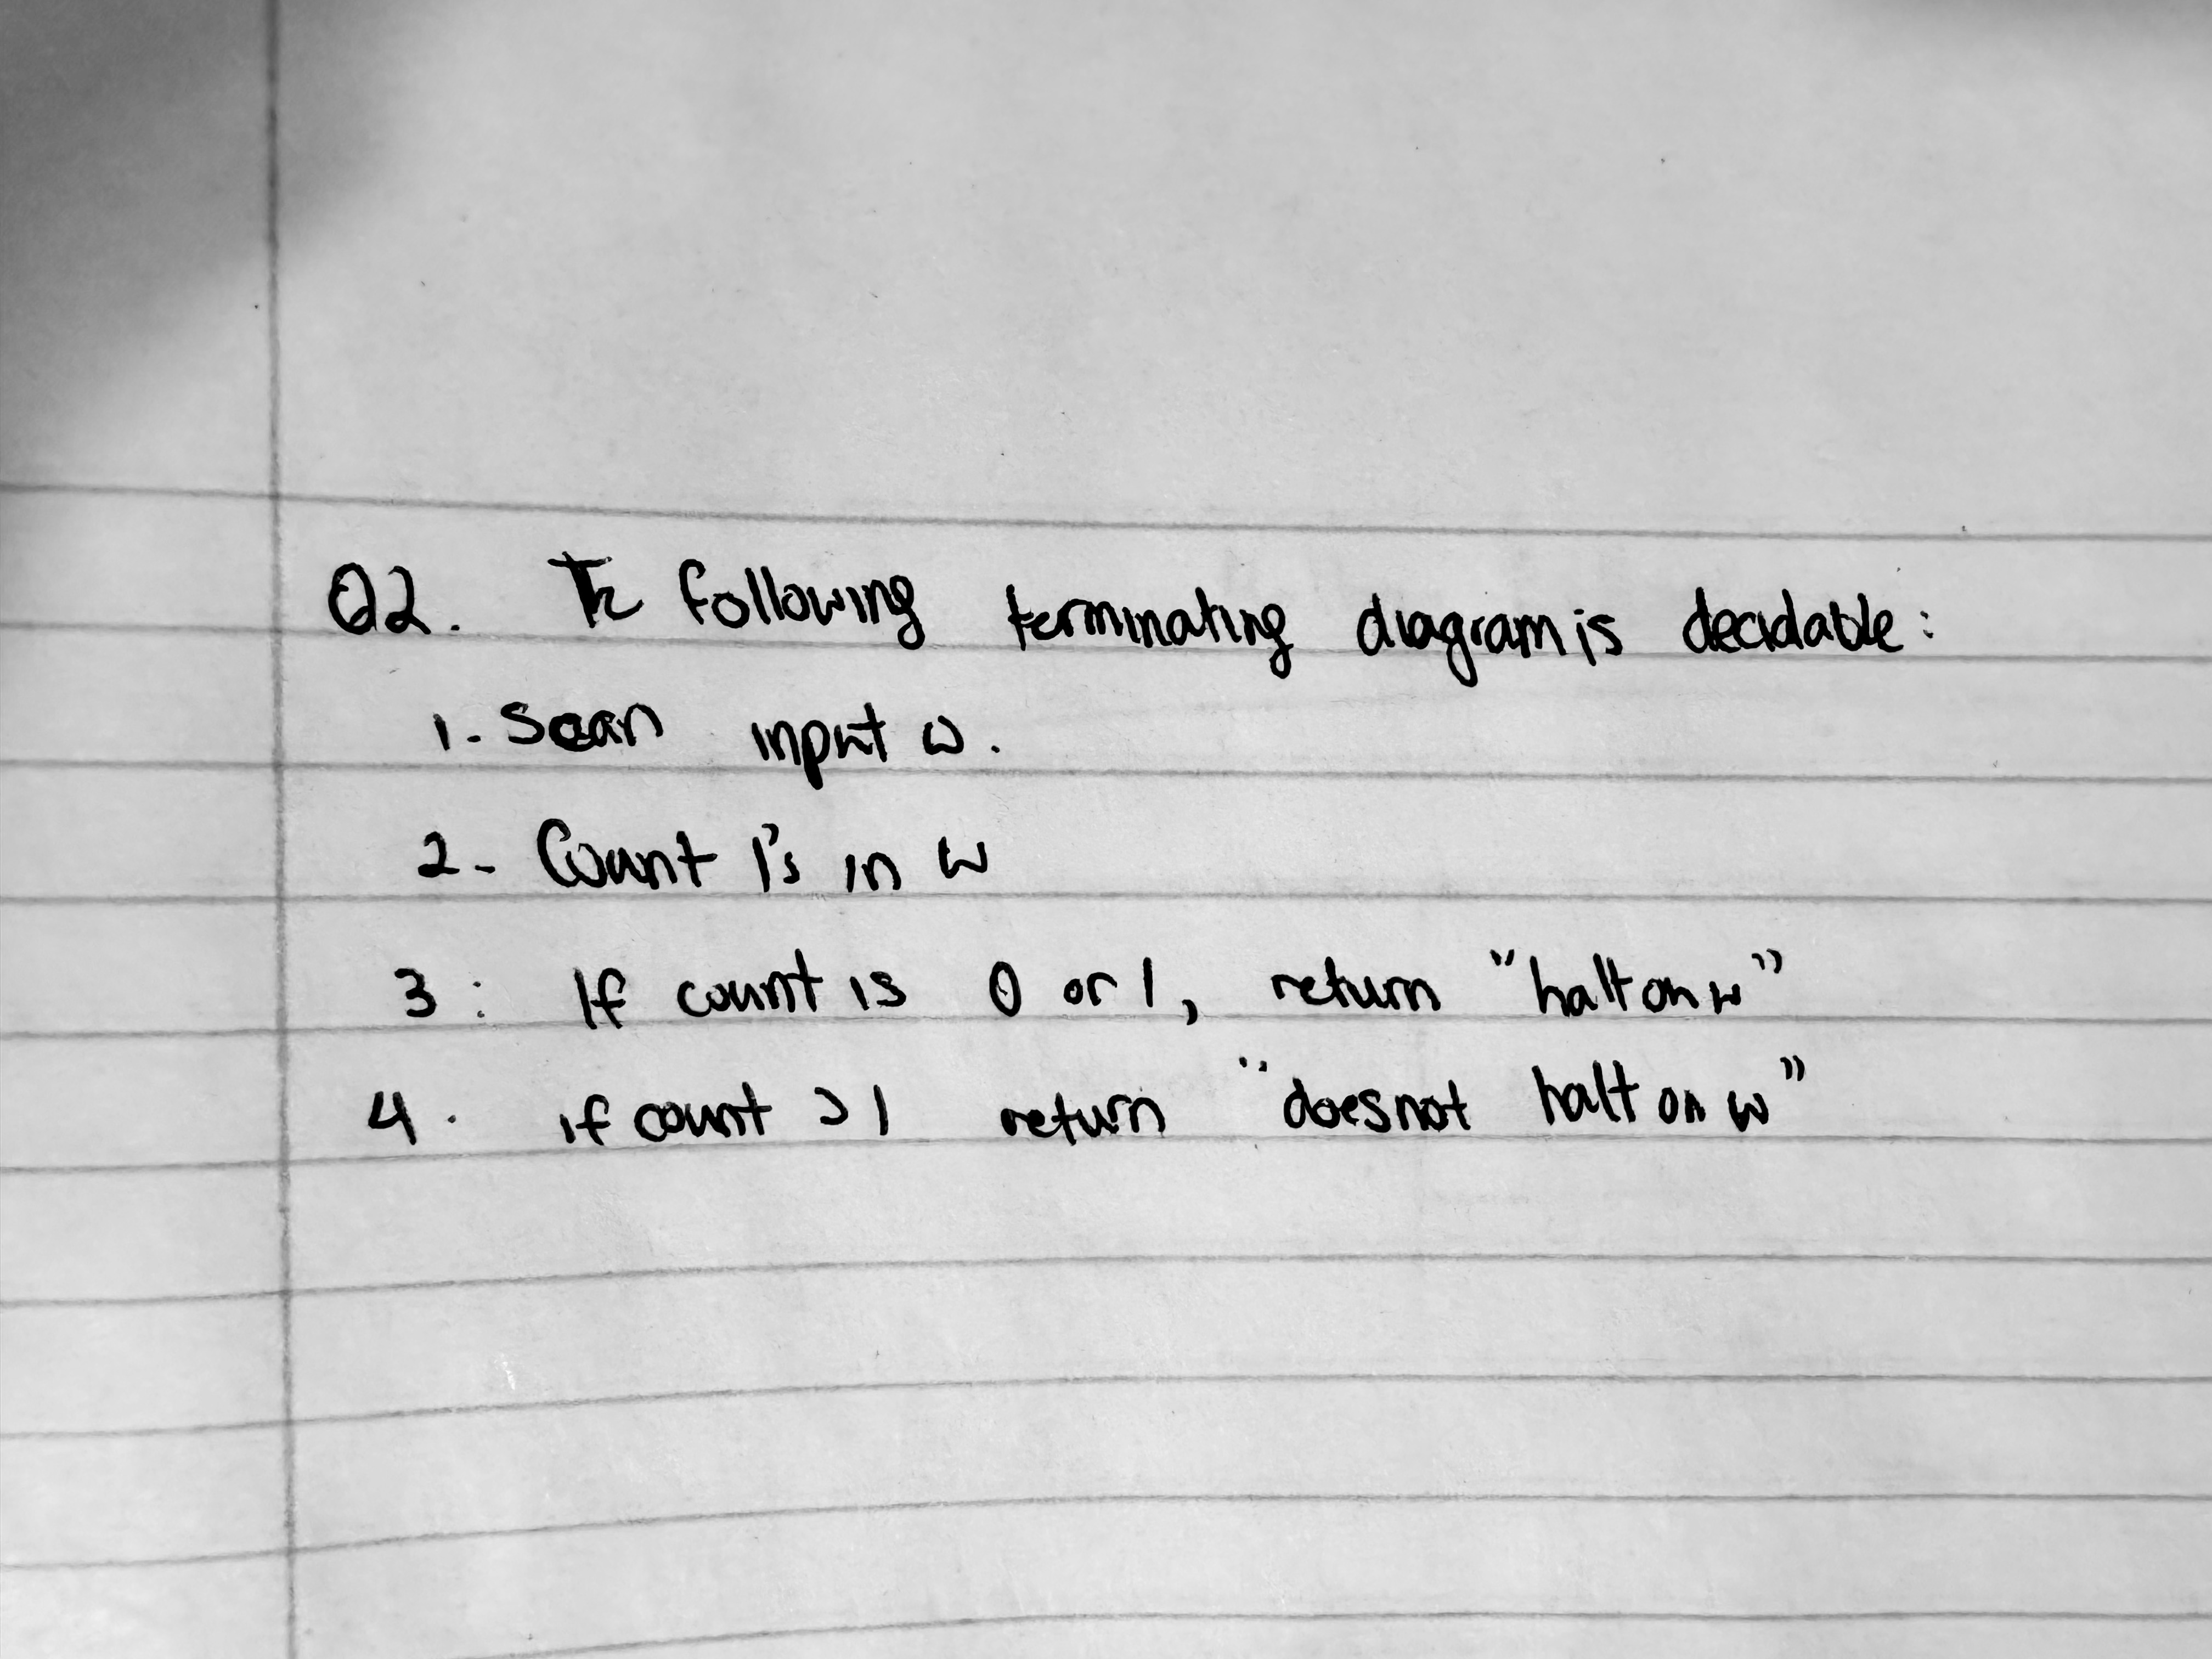 Q2. The following terminating diagram is decidable:
1. Scan input w.
2- Count 1's in w
3: If count is 0 or 1, return "halt on w"
4. if count >1 return "does not halt on w"